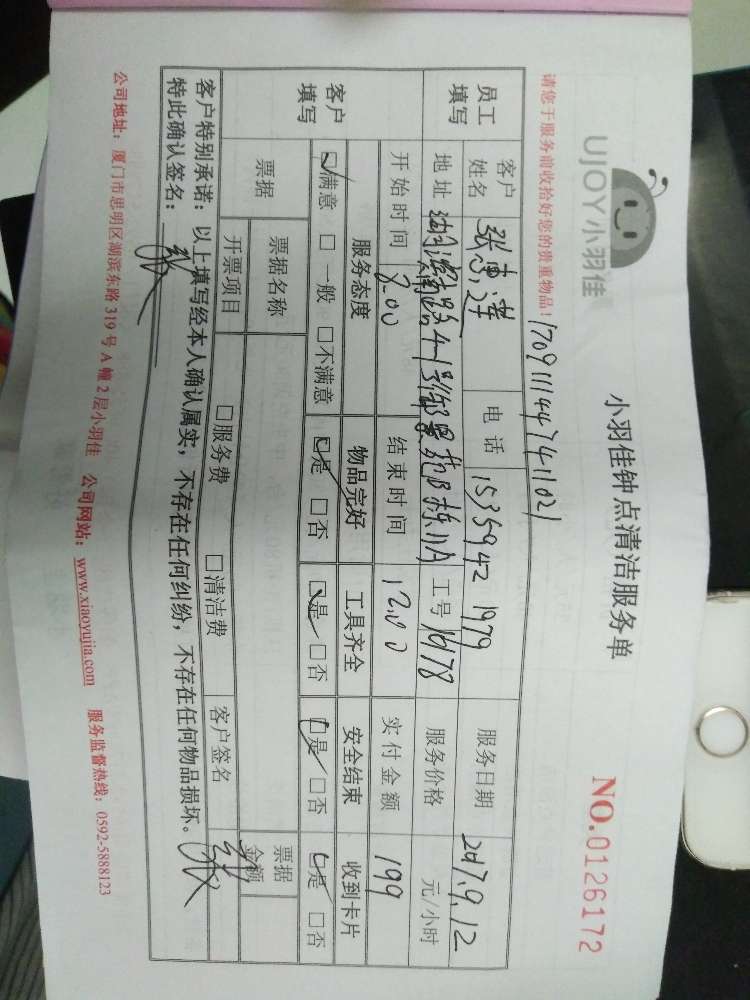 UJOY小羽佳
小羽佳钟点清洁服务单
NO.0126172
请您于服务前收拾好您的贵重物品! 170911144741021
员工填写 客户姓名 电话 1535942 1979 服务日期 2017.9.12
地址 工号 16178 服务价格 元/小时
开始时间 8:00 结束时间 12:00 实付金额 199
客户填写 服务态度 物品完好 工具齐全 安全结束 收到卡片
☑满意 □一般 □不满意 ☑是 □否 ☑是 □否 ☑是 □否 ☑是 □否
票据 票据名称 □服务费 □清洁费 客户签名 票据金额
开票项目
客户特别承诺:以上填写经本人确认属实,不存在任何纠纷,不存在任何物品损坏。
特此确认签名:
公司地址:厦门市思明区湖滨东路 319 号 A 幢 2 层小羽佳 公司网站:www.xiaoyujia.com 服务监督热线:0592-5888123